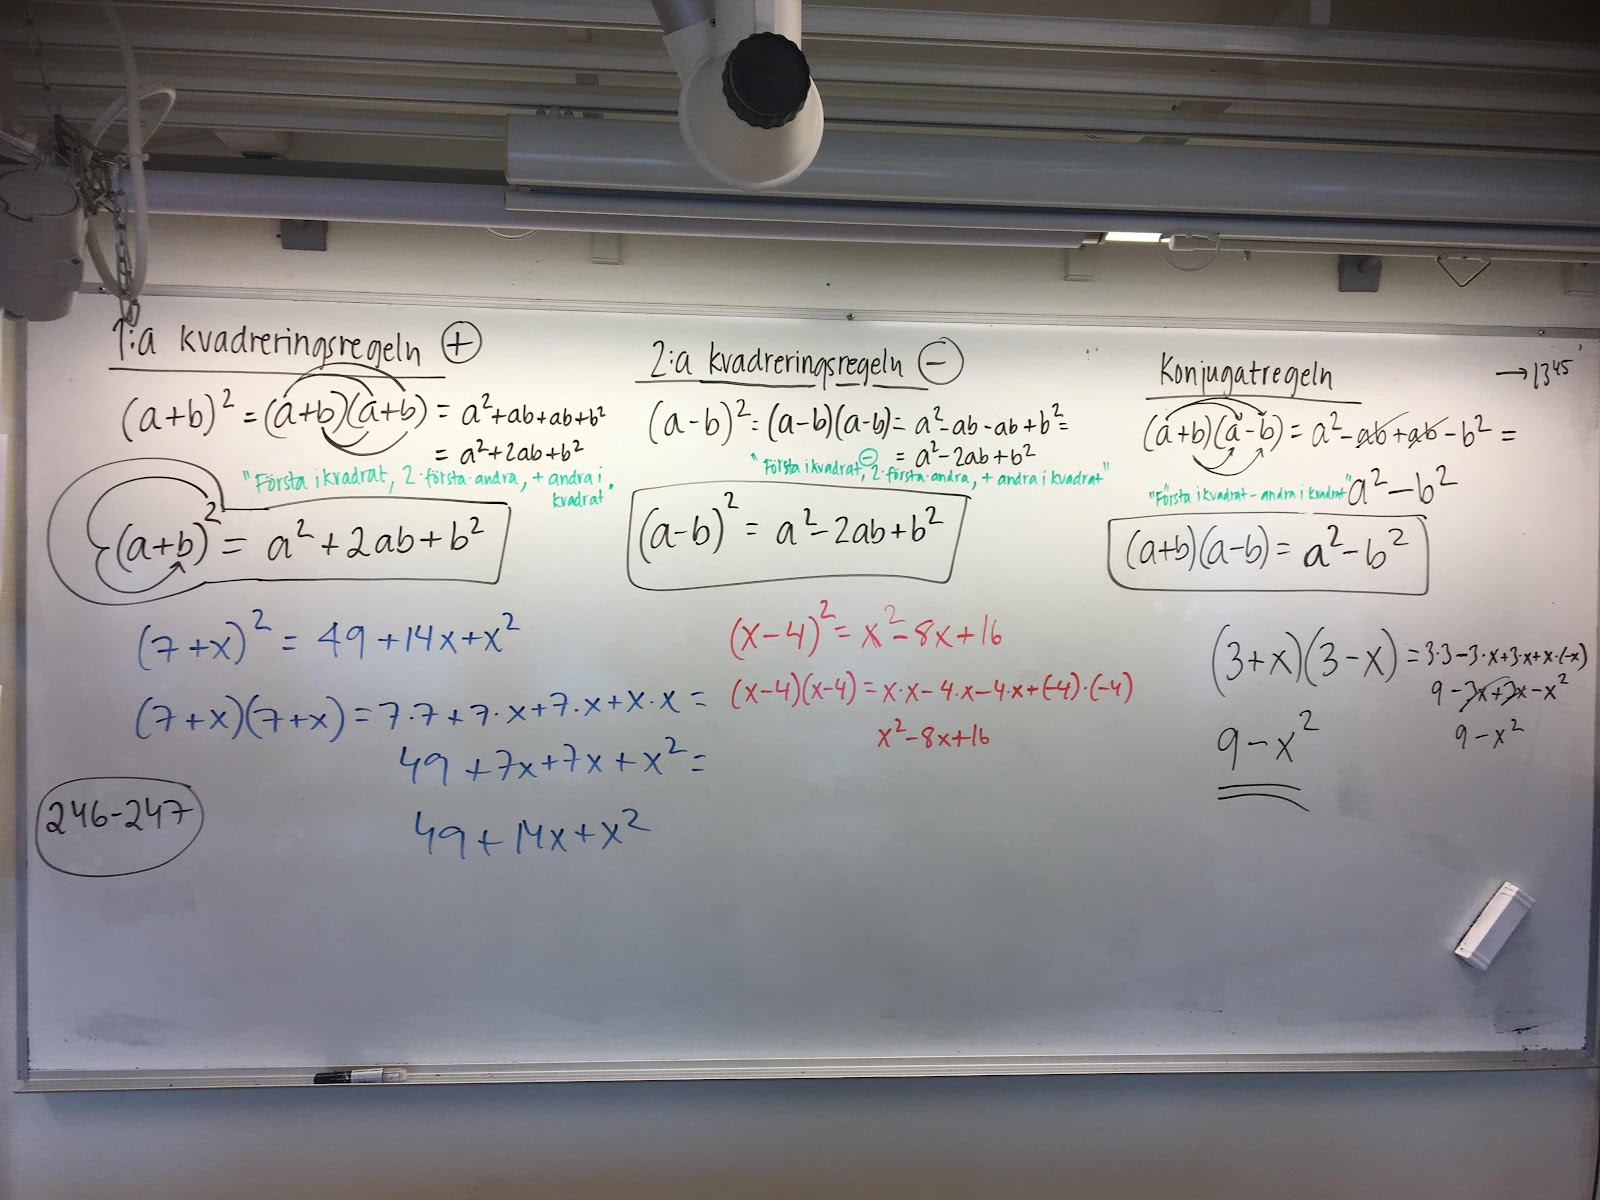 1:a kvadreringsregeln +
(a+b)² = (a+b)(a+b) = a²+ab+ab+b²
= a²+2ab+b²
"Första i kvadrat, 2·första·andra, + andra i
kvadrat
(a+b)² = a²+2ab+b²
(7+x)² = 49+14x+x²
(7+x)(7+x) = 7·7+7·x+7·x+x·x =
49+7x+7x+x² =
49+14x+x²
246-247
2:a kvadreringsregeln −
(a-b)² = (a-b)(a-b) = a²-ab-ab+b² =
= a²-2ab+b²
"Första i kvadrat, − 2·första·andra, + andra i kvadrat"
(a-b)² = a²-2ab+b²
(x-4)² = x²-8x+16
(x-4)(x-4) = x·x-4·x-4·x+(-4)·(-4)
x²-8x+16
Konjugatregeln
→ 13⁴⁵
(a+b)(a-b) = a²-ab+ab-b² =
"Första i kvadrat - andra i kvadrat" a²-b²
(a+b)(a-b) = a²-b²
(3+x)(3-x) = 3·3-3·x+3·x+x·(-x)
9-3x+3x-x²
9-x²
9-x²